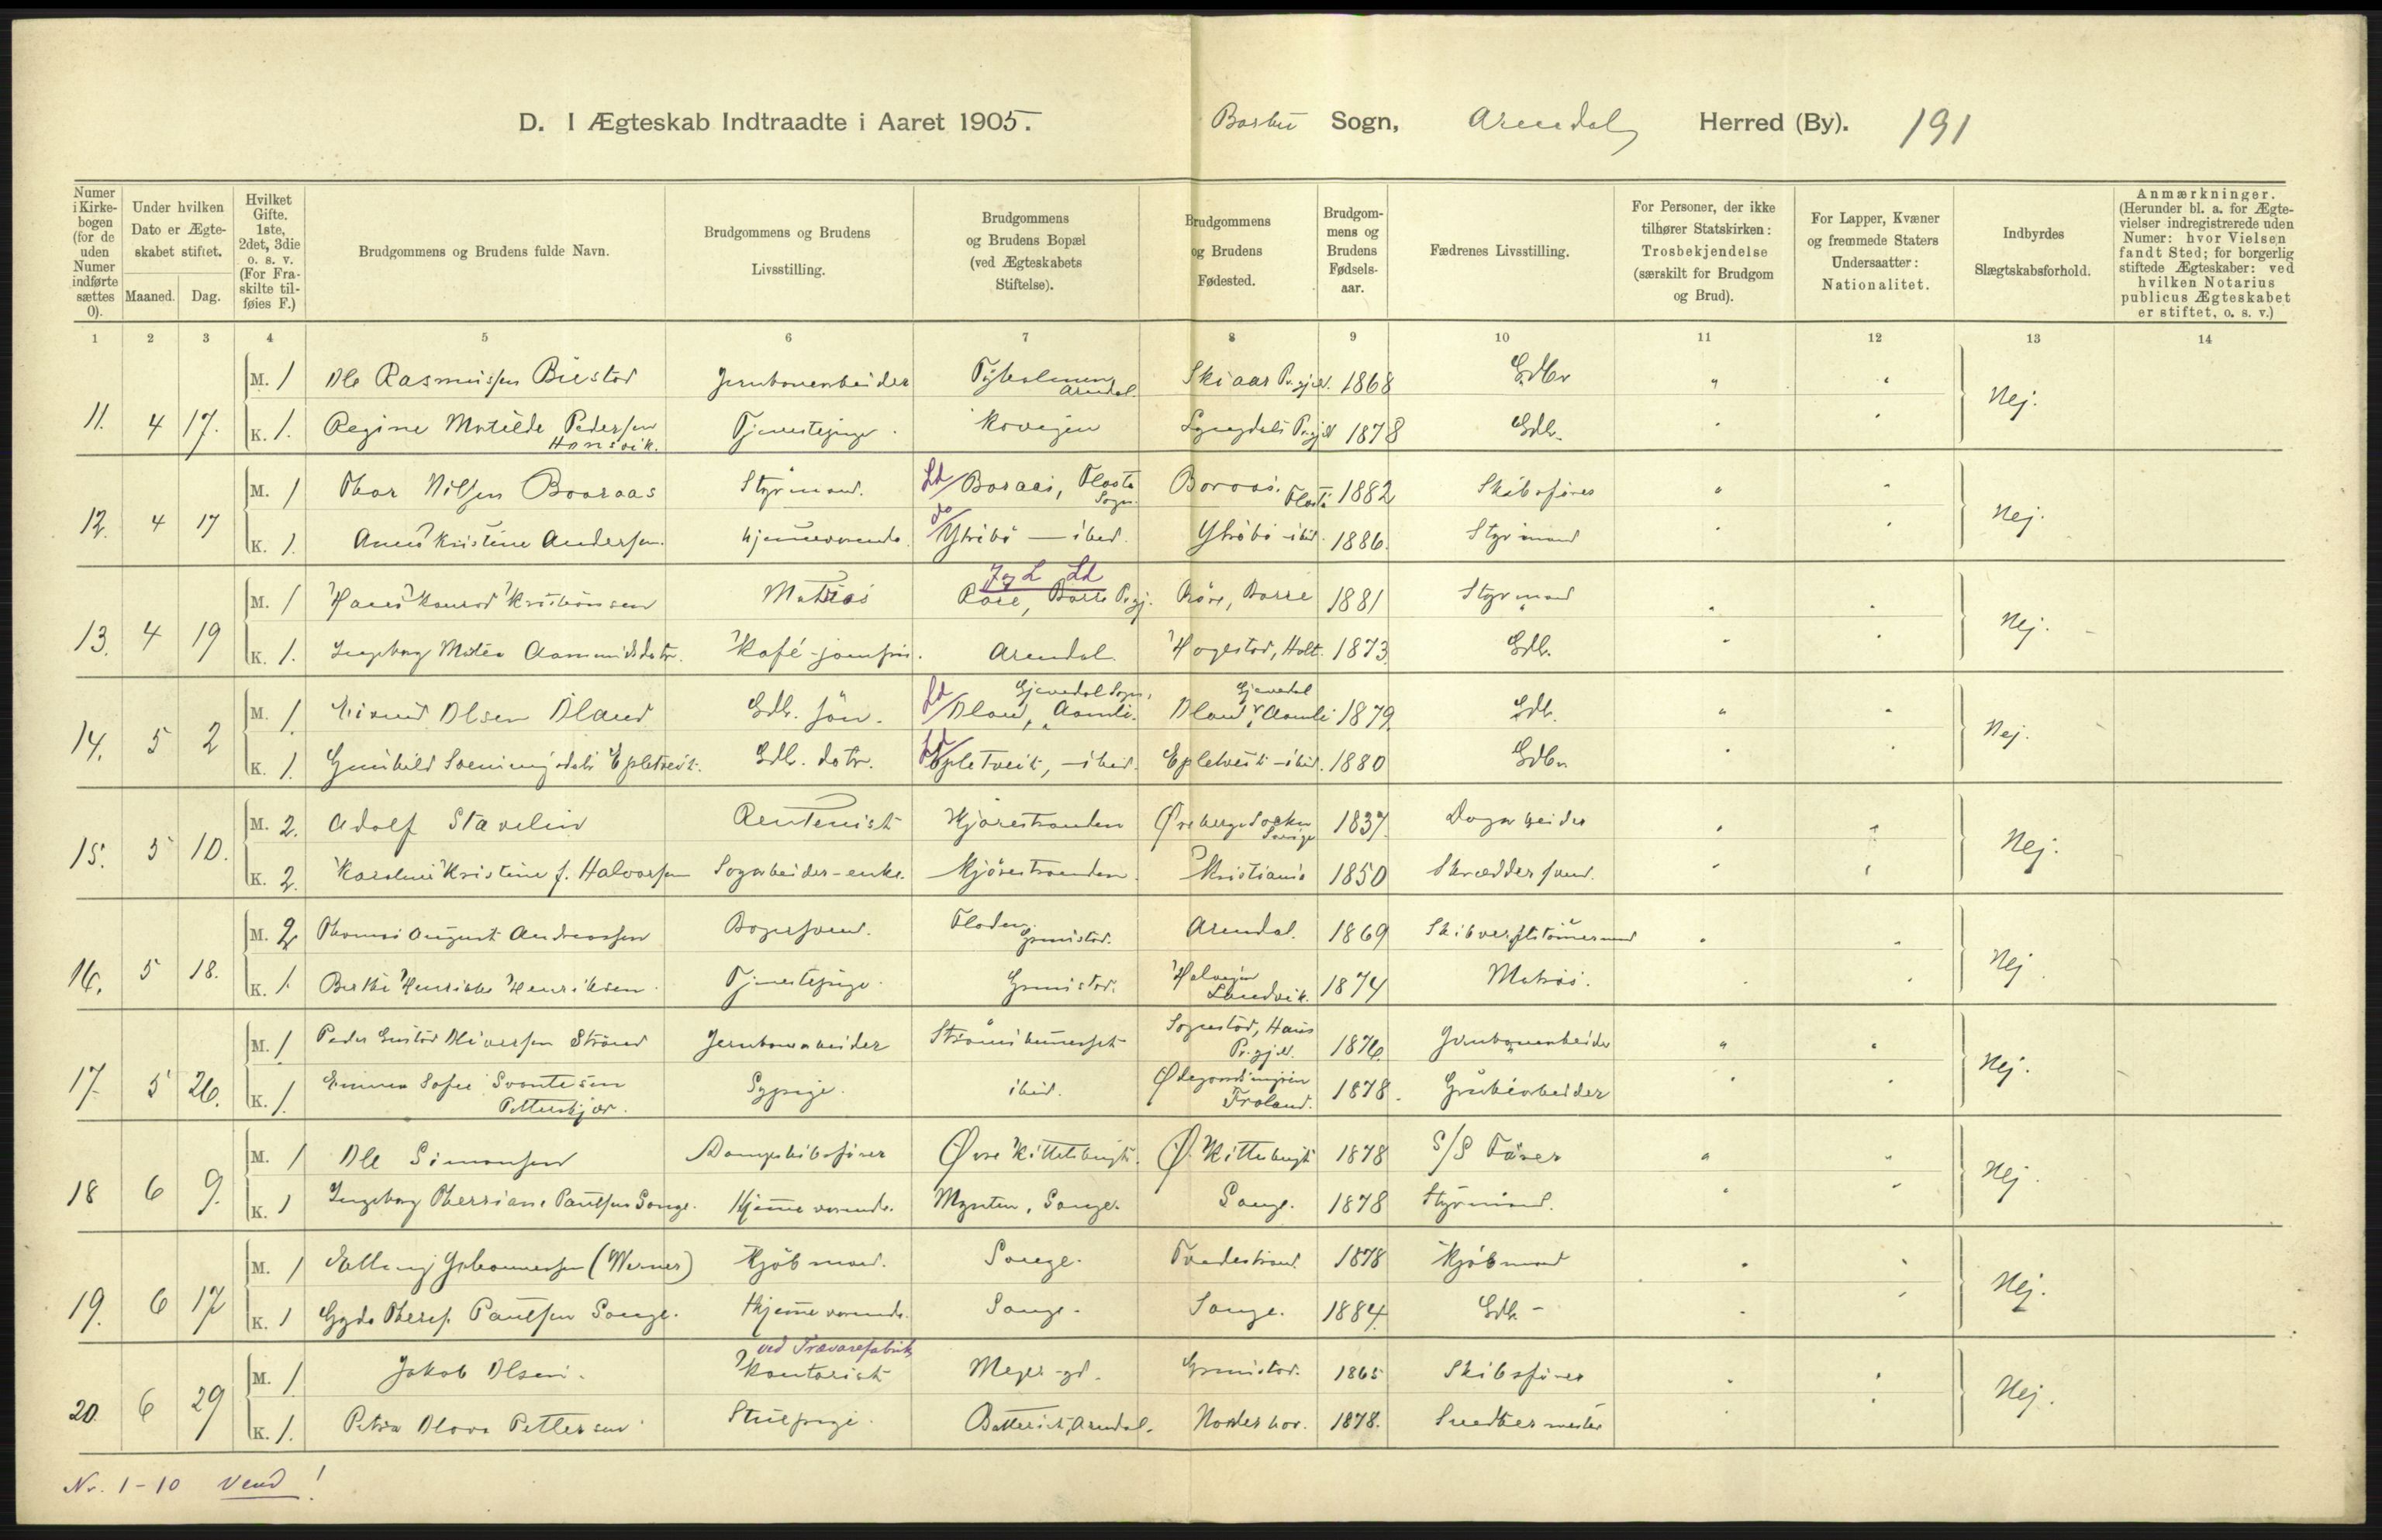 D. I Ægteskab Indtraadte i Aaret 1905. Barbu Sogn, Arendal Herred (By). 191
Numer i Kirkebogen (for de uden Numer indførte sættes 0).
Under hvilken Dato er Ægteskabet stiftet.
Maaned. Dag.
Hvilket Gifte. 1ste, 2det, 3die o. s. v. (For Fraskilte tilføies F.)
Brudgommens og Brudens fulde Navn.
Brudgommens og Brudens Livsstilling.
Brudgommens og Brudens Bopæl (ved Ægteskabets Stiftelse).
Brudgommens og Brudens Fødested.
Brudgommens og Brudens Fødselsaar.
Fædrenes Livsstilling.
For Personer, der ikke tilhører Statskirken: Trosbekjendelse (særskilt for Brudgom og Brud).
For Lapper, Kvæner og fremmede Staters Undersaatter: Nationalitet.
Indbyrdes Slægtskabsforhold.
Anmærkninger. (Herunder bl. a. for Ægtevielser indregistrerede uden Numer: hvor Vielsen fandt Sted; for borgerlig stiftede Ægteskaber: ved hvilken Notarius publicus Ægteskabet er stiftet, o. s. v.)
1 2 3 4 5 6 7 8 9 10 11 12 13 14
11. 4 17. M. 1 Ole Rasmussen Bustad Jernbanearbeider Tyholmen Arendal Skiaar Pr.gjeld. 1868 Gdbr " " Nej.
K. 1. Regine Matilde Pedersen Hansvik. Tjenestepige. Kovegen Lyngdals Pr.gjld 1878 Gdb. " "
12. 4 17 M. 1 Thor Nilsen Booraas Styrmand. Ld Boraas, Flosta Sogn. Boroas. Flosta 1882 Skibsfører " " Nej.
K. 1. Anna Kristine Andersen. hjemmeværende. do Ytrebø — ibid. Ytrebø - ibid. 1886. Styrmand " "
13. 4 19 M. 1 Hans Konrad Kristiansen Matros J og L Ld Røre, Borre Prgj. Røre, Borre 1881 Styrmand " " Nej.
K. 1. Ingeborg Matea Aamundsdatr. Kafé-jomfru. Arendal. Hogestad, Holt. 1873. Gdb. " "
14. 5 2 M. 1. Eivind Olsen Øland Gdb. søn. Ld Øland, Gjevedal Sogn, Aamli. Øland, Gjevedal Aamli 1879. Gdb. " " Nej.
K. 1. Gunhild Sveinungsdatr Epletveit. Gdb. datr. Ld Epletveit, - ibid. Epletveit - ibid. 1880 Gdbr. " "
15. 5 10. M. 2. Adolf Stavelin Rentenist Kjørestranden Socken Sverige 1837. Dagarbeider " " Nej.
K. 2. Karoline Kristine f. Halvorsen Sagarbeider-enke. Kjørestranden. Kristiania 1850 Skræddersvend. " "
16. 5 18. M. 2 Thomas August Andreassen Bagersvend. Floden, Grimstad. Arendal. 1869 Skibsverftstømmermand " " Nej.
K. 1. Berthe Henrikke Henriksen. Tjenestepige. Grimstad. Landvik. 1874 Matros. " "
17. 5 26. M. 1 Peder Gustav Oliversen Strand Jernbanearbeider Strømsbuneset Sognstad, Haus Pr.gjeld. 1876. Jernbanearbeider " " Nej.
K. 1. Emma Sofie Svontesen Petterskjær. Sypige. ibid. Froland. 1878. Grubearbeider " "
18 6 9. M. 1 Ole Simonsen Dampskibsfører Øvre Kittelsbugt. Ø. Kittelsbugt 1878 S/S Fører " " Nej.
K. 1 Ingeborg Therriane Paulsen Songe. Hjemmeværende. Mynten, Songe. Songe. 1878 Styrmand. " "
19. 6 17 M. 1 Elling Johannessen (Werner) Kjøbmand. Songe. Tvedestrand. 1878 Kjøbmand " " Nej.
K. 1 Gyda Theres. Paulsen Songe. Hjemmeværende. Songe. Songe. 1884. Gdb. " "
20. 6 29 M. 1 Jakob Olsen. ved Trævarefabrik Kontorist Meyer-gd. Grimstad. 1865 Skibsfører " " Nej.
K. 1. Petra Olava Pettersen Stuepige. Batteriet, Arendal. Norderhov. 1878. Snedkermester " "
Nr. 1-10 Vend!